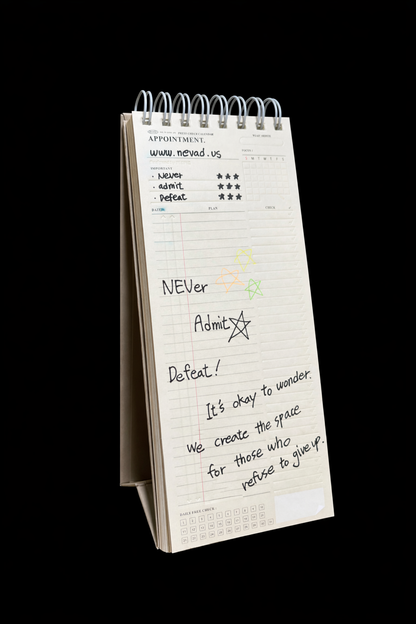 APPOINTMENT.
www.nevad.us
IMPORTANT
· Never ★★★
· admit ★★★
· Defeat ★★★
DATE PLAN CHECK
NEVer
Admit
Defeat!
It's okay to wonder.
we create the space
for those who
refuse to give up.
DAILY FREE CHECK.